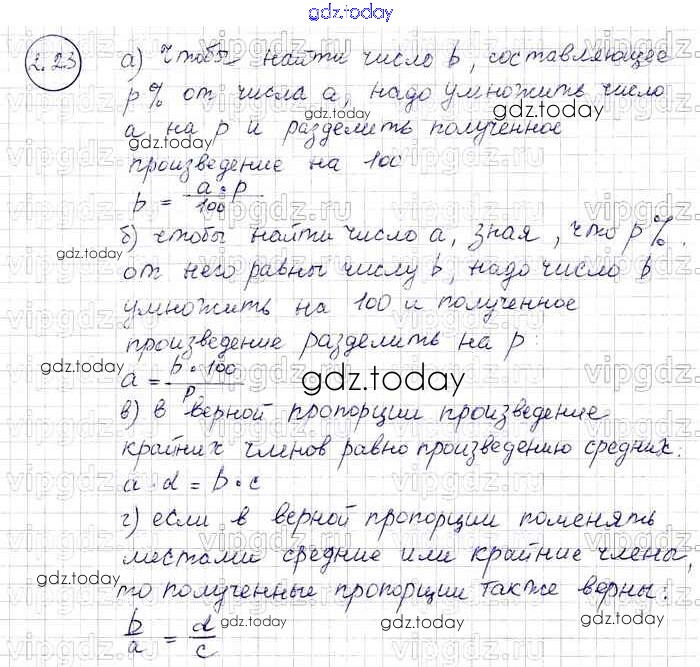 gdz.today
2.23
а) чтобы найти число b, составляющее
p% от числа a, надо умножить число
a на p и разделить полученное
произведение на 100
b = a·p/100
б) чтобы найти число a, зная, что p%
от него равны числу b, надо число b
умножить на 100 и полученное
произведение разделить на p:
a = b·100/p
в) в верной пропорции произведение
крайних членов равно произведению средних.
a·d = b·c
г) если в верной пропорции поменять
местами средние или крайние члены,
то полученные пропорции также верны.
b/a = d/c